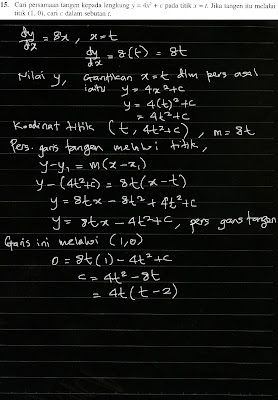 15. Cari persamaan tangen kepada lengkung y = 4x² + c pada titik x = t. Jika tangen itu melalui
titik (1, 0), cari c dalam sebutan t.
dy/dx = 8x, x=t
dy/dx = 8(t) = 8t
Nilai y, Gantikan x=t dlm pers asal
iaitu y = 4x²+c
y = 4(t)²+c
= 4t²+c
Koordinat titik (t, 4t²+c), m = 8t
Pers. garis tangen melalui titik,
y-y₁ = m(x-x₁)
y-(4t²+c) = 8t(x-t)
y = 8tx - 8t² + 4t²+c
y = 8tx - 4t²+c, pers garis tangen
Garis ini melalui (1,0)
0 = 8t(1) - 4t²+c
c = 4t² - 8t
= 4t(t-2)